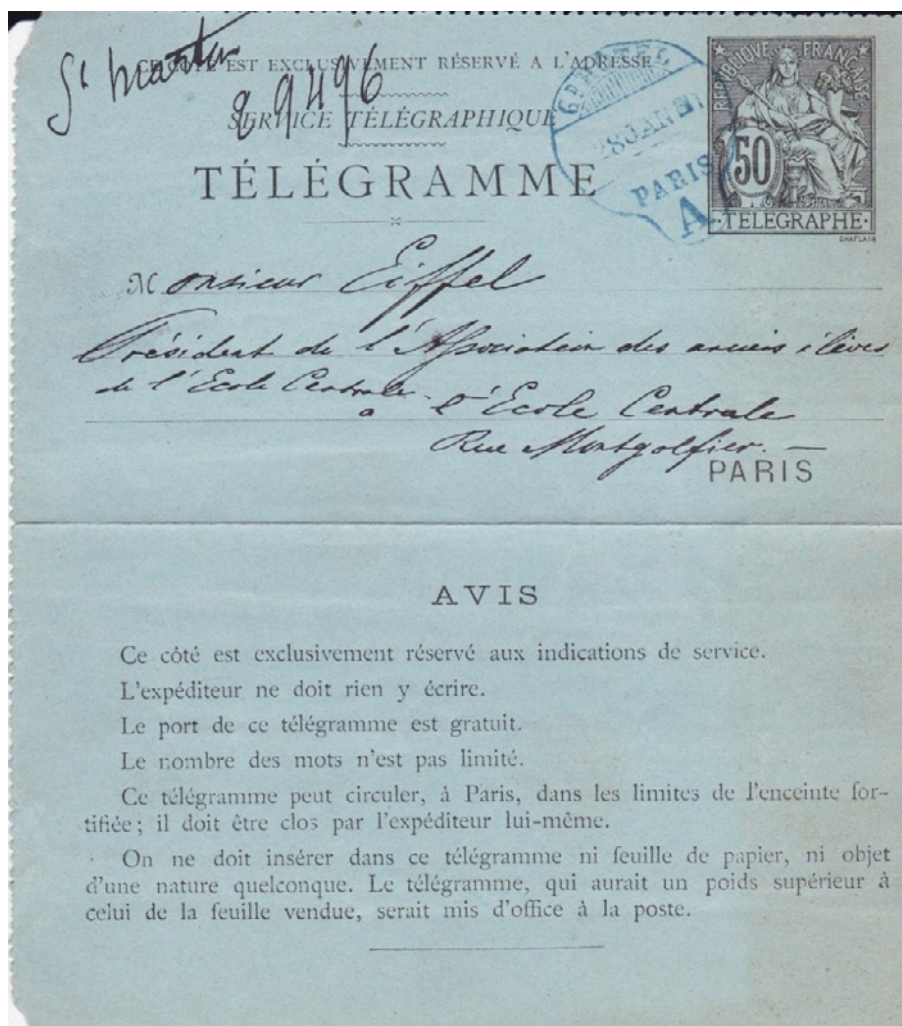 St Martin
CE COTÉ EST EXCLUSIVEMENT RÉSERVÉ A L'ADRESSE
89496
SERVICE TÉLÉGRAPHIQUE
TÉLÉGRAMME
Gd HOTEL
28 JAN
PARIS
A
REPUBLIQUE FRANCAISE
50
TELEGRAPHE
CHAPLAIN
Monsieur Eiffel
Président de l'Association des anciens élèves
de l'Ecole Centrale
a l'Ecole Centrale
Rue Montgolfier. —
PARIS
AVIS
Ce côté est exclusivement réservé aux indications de service.
L'expéditeur ne doit rien y écrire.
Le port de ce télégramme est gratuit.
Le nombre des mots n'est pas limité.
Ce télégramme peut circuler, à Paris, dans les limites de l'enceinte for-
tifiée; il doit être clos par l'expéditeur lui-même.
On ne doit insérer dans ce télégramme ni feuille de papier, ni objet
d'une nature quelconque. Le télégramme, qui aurait un poids supérieur à
celui de la feuille vendue, serait mis d'office à la poste.